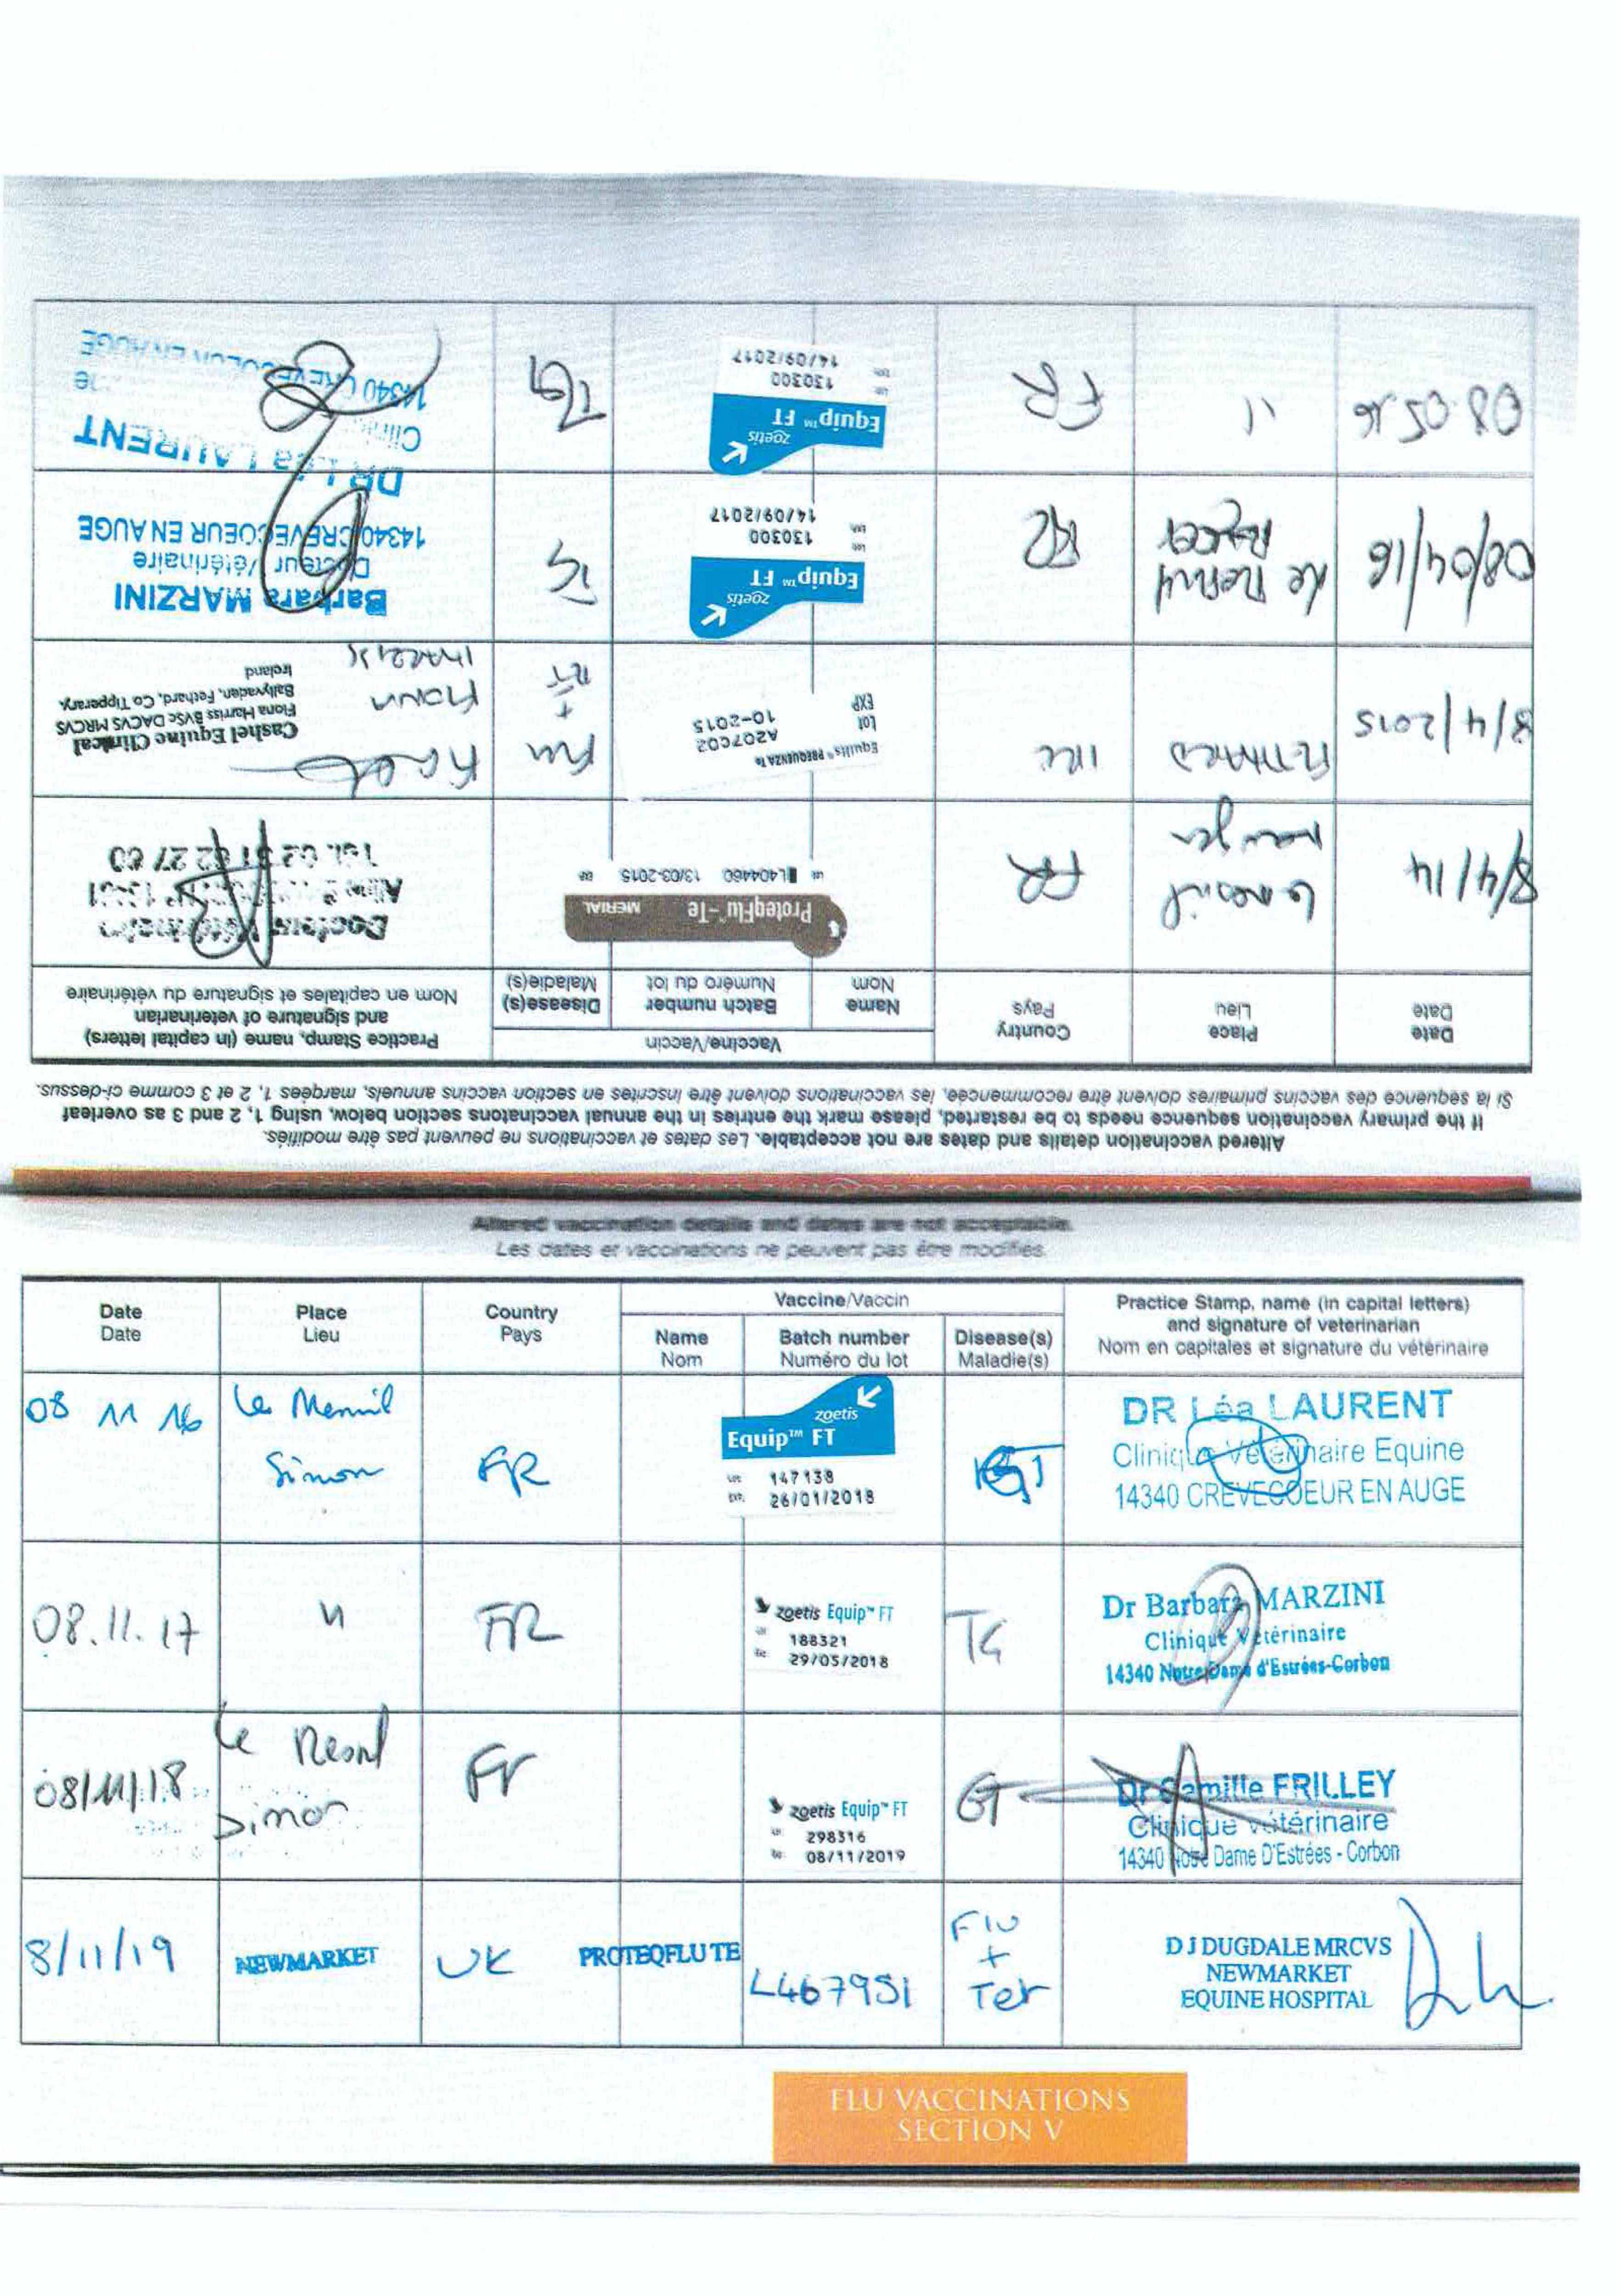 Altered vaccination details and dates are not acceptable. Les dates et vaccinations ne peuvent pas être modifiés.
If the primary vaccination sequence needs to be restarted, please mark the entries in the annual vaccinatons section below, using 1, 2 and 3 as overleaf
Si la séquence des vaccins primaires doivent être recommencée, les vaccinations doivent être inscrites en section vaccins annuels, marqées 1, 2 et 3 comme ci-dessus.
Date
Date
Place
Lieu
Country
Pays
Vaccine/Vaccin
Name
Nom
Batch number
Numéro du lot
Disease(s)
Maladie(s)
Practice Stamp, name (in capital letters)
and signature of veterinarian
Nom en capitales et signature du vétérinaire
8/4/14
FR
ProteqFlu™-Te MERIAL
L404460 13/03-2015
Docteur
8/4/2015
FETHARD
IRL
Equilis® PREQUENZA Te
Lot A207C02
EXP 10-2015
Cashel Equine Clinical
Fiona Harriss BVSc DACVS MRCVS
Ballyvaden, Fethard, Co Tipperary,
Ireland
08/04/16
FR
zoetis
Equip™ FT
130300
14/09/2017
TG
Barbara MARZINI
Docteur Vétérinaire
14340 CREVECOEUR EN AUGE
08.05.16
11
FR
zoetis
Equip™ FT
130300
14/09/2017
TG
DR Léa LAURENT
14340 CREVECOEUR EN AUGE
Altered vaccination details and dates are not acceptable.
Les dates et vaccinations ne peuvent pas être modifiés.
Date
Date
Place
Lieu
Country
Pays
Vaccine/Vaccin
Name
Nom
Batch number
Numéro du lot
Disease(s)
Maladie(s)
Practice Stamp, name (in capital letters)
and signature of veterinarian
Nom en capitales et signature du vétérinaire
08 11 16
Le Mesnil
Simon
FR
zoetis
Equip™ FT
Lot: 147138
EXP. 26/01/2018
GT
DR Léa LAURENT
Clinique Vétérinaire Equine
14340 CREVECOEUR EN AUGE
08.11.17
11
FR
zoetis Equip™ FT
188321
29/05/2018
TG
Dr Barbara MARZINI
Clinique Vétérinaire
14340 Notre Dame d'Estrées-Corbon
08/11/18
Le Mesnil
Simon
Fr
zoetis Equip™ FT
298316
08/11/2019
GT
Dr Camille FRILLEY
Clinique vétérinaire
14340 Notre Dame D'Estrées - Corbon
8/11/19
NEWMARKET
UK
PROTEQFLU TE
L467951
Flu
+
Tet
D J DUGDALE MRCVS
NEWMARKET
EQUINE HOSPITAL
FLU VACCINATIONS
SECTION V